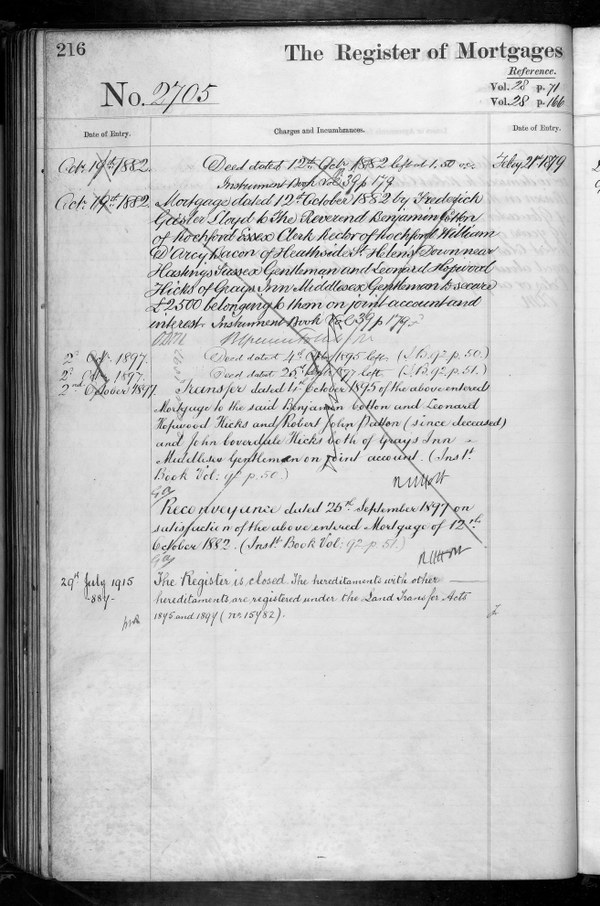 216
The Register of Mortgages
Reference.
No. 2705
Vol. 28 p. 71
Vol. 28 p. 166
Date of Entry.
Charges and Incumbrances.
Date of Entry.
Oct. 19th 1882.
Deed dated 12th Octr. 1882 left at 1,50
Feby 21st 1879
Instrument Book Vol. 39 p 179
Oct. 19th 1882.
Mortgage dated 12th October 1882 by Frederick
Lloyd to The Reverend Benjamin Cotton
of Rochford Essex Clerk Rector of Rochford William
D'Arcy Bacon of Heathside St Helens Down near
Hastings Sussex Gentleman and Leonard Hopwood
Hicks of Grays Inn Middlesex Gentleman to secure
£2500 belonging to them on joint account and
interest. Instrument Book Vol. 39 p 179
2d Octr. 1897.
Deed dated 4th 1895 left (I.B. 92 p. 50.)
2d 1897.
Deed dated 25th 1897 left (I.B. 92 p. 51.)
2nd October 1897.
Transfer dated 4th October 1895 of the above entered
Mortgage to the said Benjamin Cotton and Leonard
Hopwood Hicks and Robert John Patton (since deceased)
and John Coverdale Hicks both of Grays Inn
Middlesex Gentleman on joint account. (Inst.
Book Vol: 92 p. 50.)
Reconveyance dated 25th September 1897 on
satisfaction of the above entered Mortgage of 12th
October 1882. (Inst. Book Vol: 92 p. 51.)
29th July 1915
The Register is closed. The hereditaments with other
-887-
hereditaments are registered under the Land Transfer Acts
1875 and 1897 (No. 15782).